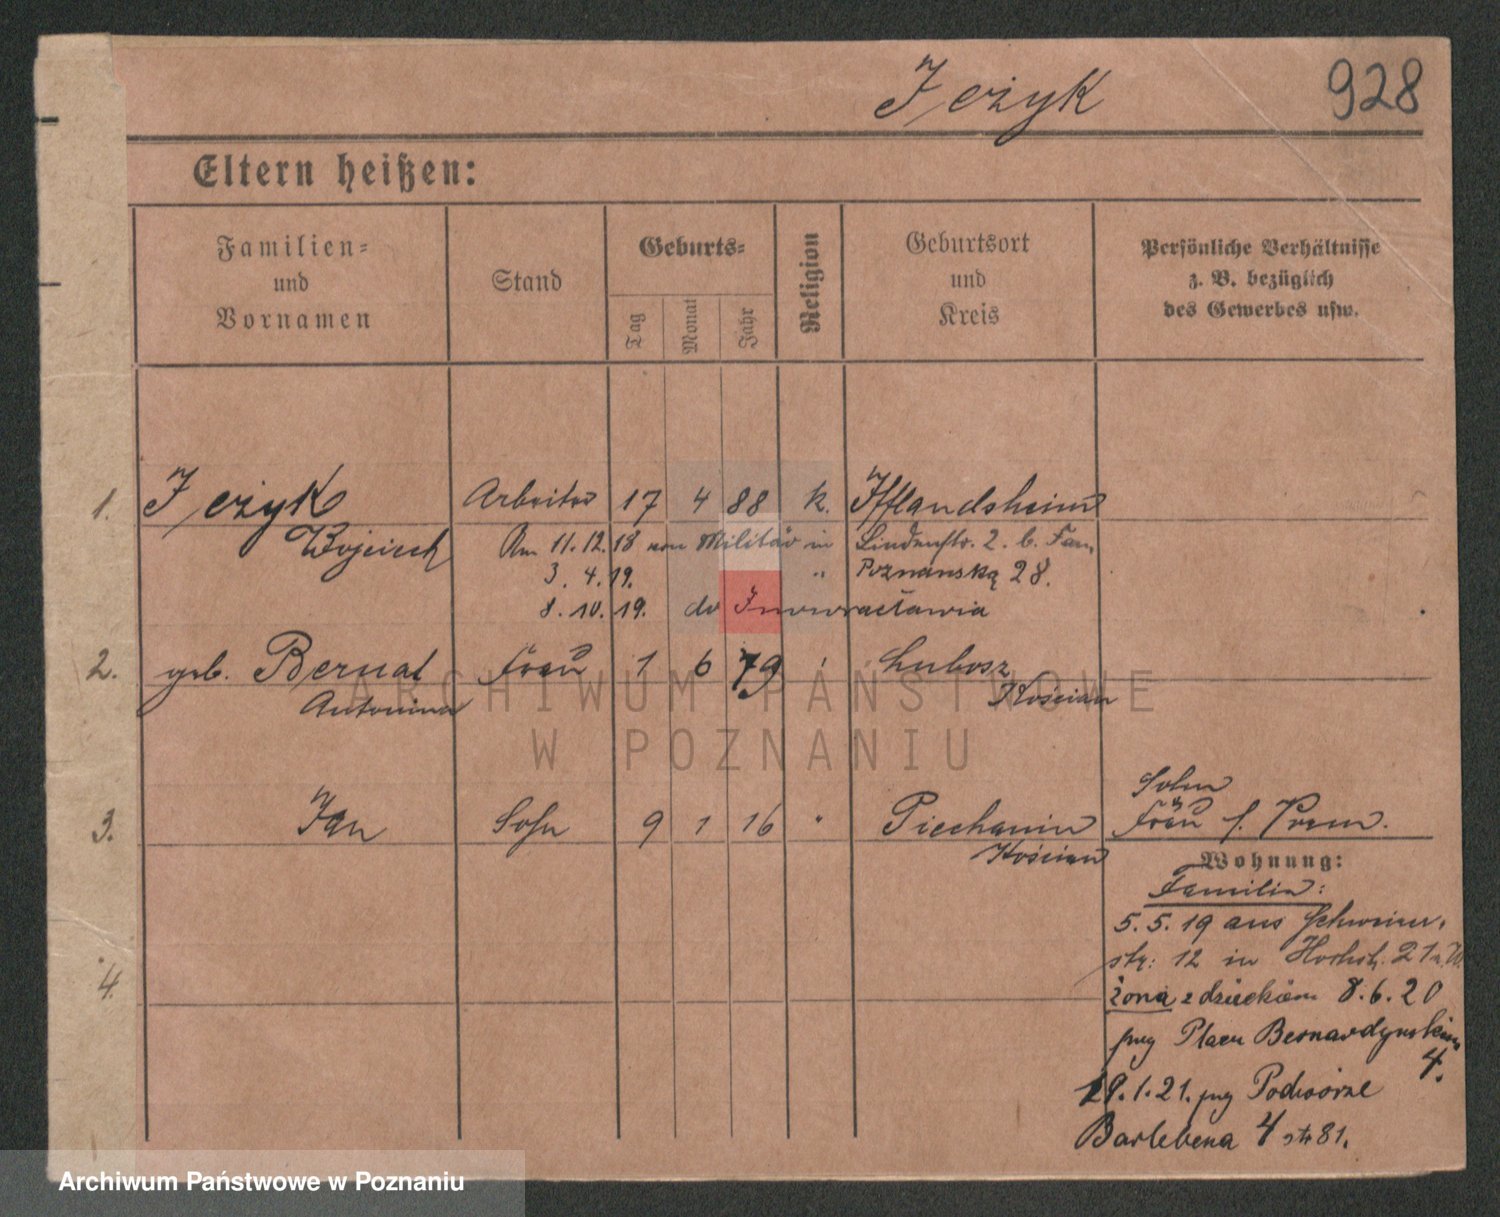 Jeżyk
928
Eltern heißen:
Familien-
und
Vornamen
Stand
Geburts-
Tag
Monat
Jahr
Religion
Geburtsort
und
Kreis
Persönliche Verhältnisse
z. B. bezüglich
des Gewerbes usw.
1. Jeżyk Arbeiter 17 4 88 k. Ifflandsheim
Wojciech Am 11.12.18 vom Militär in Lindenstr. 2. b. Fam.
3. 4. 19. " Poznańską 28.
8. 10. 19. do Inowrocławia
2. geb. Bernat Frau 1 6 79 Lubosz
Antonina Kościan
3. Jan Sohn 9 1 16 " Piechanin
Kościan
Sohn
Frau f. Prem.
Wohnung:
Familie:
5. 5. 19 aus
str: 12 in Hochstr. 21
żona z dzieckiem 8.6.20
przy Placu Bernardyńskim
4.
29.1.21. przy Podwórze
Barlebena 4 str 81.
4.
ARCHIWUM PAŃSTWOWE
W POZNANIU
Archiwum Państwowe w Poznaniu